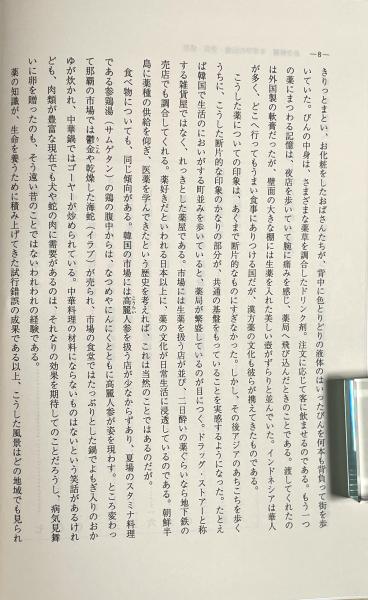 —8—
きりっとまとい、お化粧をしたおばさんたちが、背中に色とりどりの液体のはいったびんを何本も背負って街を歩
いていた。びんの中身は、さまざまな薬草を調合したドリンク剤。注文に応じて客に飲ませるのである。もう一つ
の薬にまつわる記憶は、夜店を歩いていて腕に痛みを感じ、薬局へ飛び込んだときのことである。渡してくれたの
は外国製の軟膏だったが、壁面の大きな棚には生薬を入れた美しい壺がずらりと並んでいた。インドネシアは華人
が多く、どこへ行ってもうまい食事にありつける国だが、漢方薬の文化も彼らが携えてきたものである。
こうした薬についての印象は、あくまで断片的なものにすぎなかった。しかし、その後アジアのあちこちを歩く
うちに、こうした断片的な印象のかなりの部分が、共通の基盤をもっていることを実感するようになった。たとえ
ば韓国で生活のにおいがする町並みを歩いていると、薬局が繁盛しているのが目につく。ドラッグ・ストアーと称
する雑貨屋ではなく、れっきとした薬屋である。市場には生薬を扱う店が並び、二日酔いの薬ぐらいなら地下鉄の
売店でも調合してくれる。薬好きだといわれる日本人以上に、薬の文化が日常生活に浸透しているのである。朝鮮半
島に薬種の供給を仰ぎ、医薬を学んできたという歴史を考えれば、これは当然のことではあるのだが。
食べ物についても、同じ傾向がある。韓国の市場には高麗人参を扱う店が少なからずあり、夏場のスタミナ料理
である参鶏湯（サムゲタン）の鶏の腹中からは、なつめやにんにくとともに高麗人参が姿を現わす。ところ変わっ
て那覇の市場では鬱金や乾燥した海蛇（イラブ）が売られ、市場の食堂ではたっぷりとした鍋でよもぎ入りのおか
ゆが炊かれ、中華鍋ではゴーヤーが炒められている。中華料理の材料にならないものはないという笑話があるけれ
ども、肉類が豊富な現在でも犬や蛇の肉に需要があるのは、それなりの効果を期待してのことだろうし、病気見舞
いに卵を贈ったのも、そう遠い昔のことではないわれわれの経験である。
薬の知識が、生命を養うために積み上げてきた試行錯誤の成果である以上、こうした風景はどの地域でも見られ